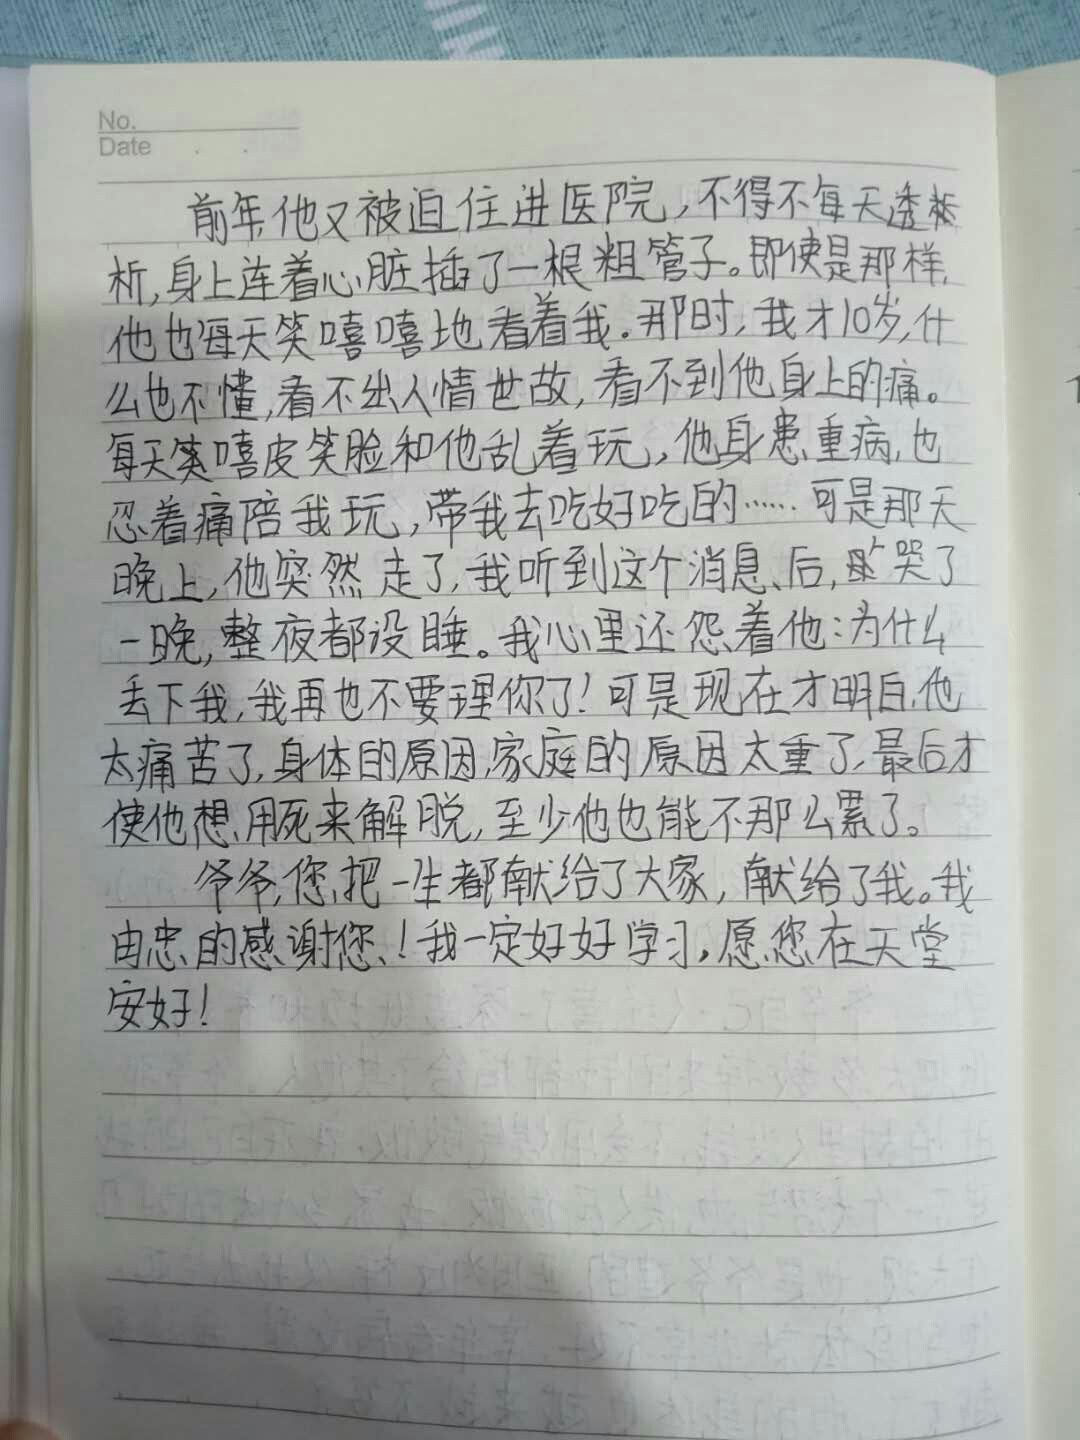 No.
Date
前年他又被迫住进医院,不得不每天透
析,身上连着心脏插了一根粗管子。即使是那样,
他也每天笑嘻嘻地看着我.那时,我才10岁,什
么也不懂,看不出人情世故,看不到他身上的痛。
每天笑嘻皮笑脸和他乱着玩,他身患重病,也
忍着痛陪我玩,带我去吃好吃的……可是那天
晚上,他突然走了,我听到这个消息后,哭了
一晚,整夜都没睡。我心里还怨着他:为什么
丢下我,我再也不要理你了!可是现在才明白,他
太痛苦了,身体的原因,家庭的原因太重了,最后才
使他想用死来解脱,至少他也能不那么累了。
爷爷,您把一生都献给了大家,献给了我。我
由忠的感谢您!我一定好好学习,愿您在天堂
安好!